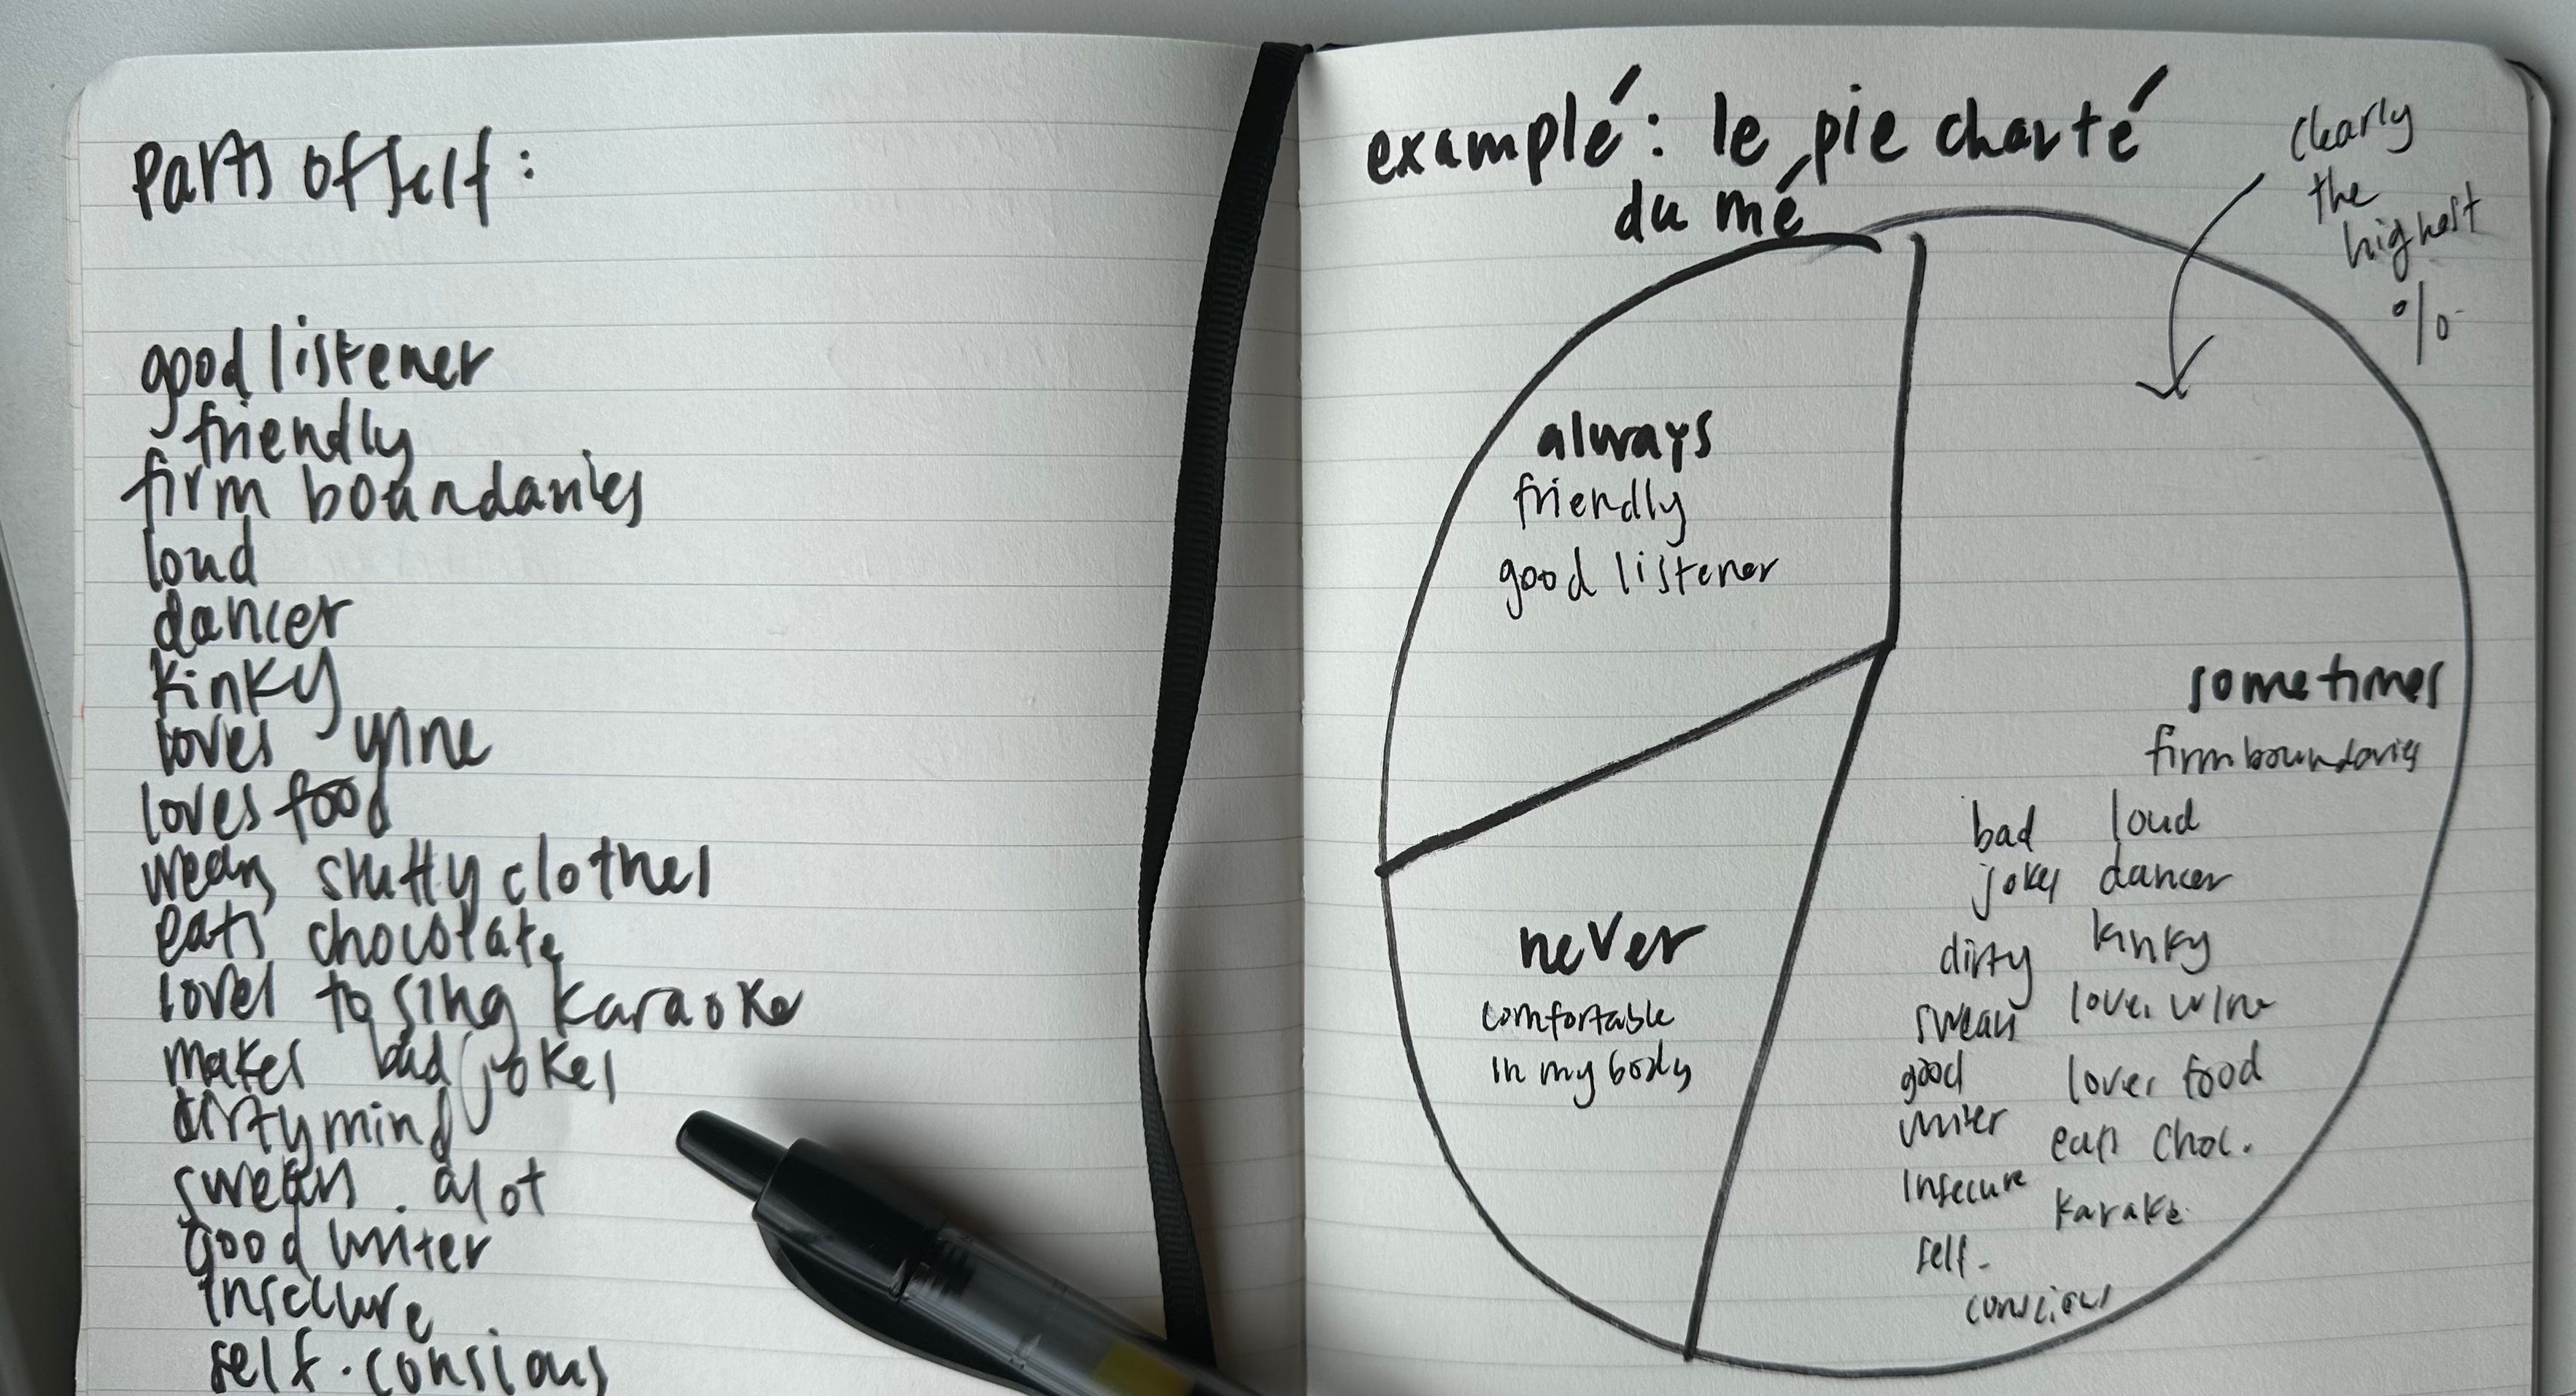 Parts of self:
good listener
friendly
firm boundaries
loud
dancer
kinky
loves wine
loves food
wears slutty clothes
eats chocolate
loves to sing karaoke
makes bad jokes
dirty mind
swears alot
good writer
insecure
self-consious
examplé: le pie charté
du mé
clearly
the
highest
%
always
friendly
good listener
never
comfortable
in my body
sometimes
firm boundaries
loud
dancer
kinky
loves wine
loves food
eats choc.
karake
bad
jokes
dirty
swears
good
writer
insecure
self-
conscious